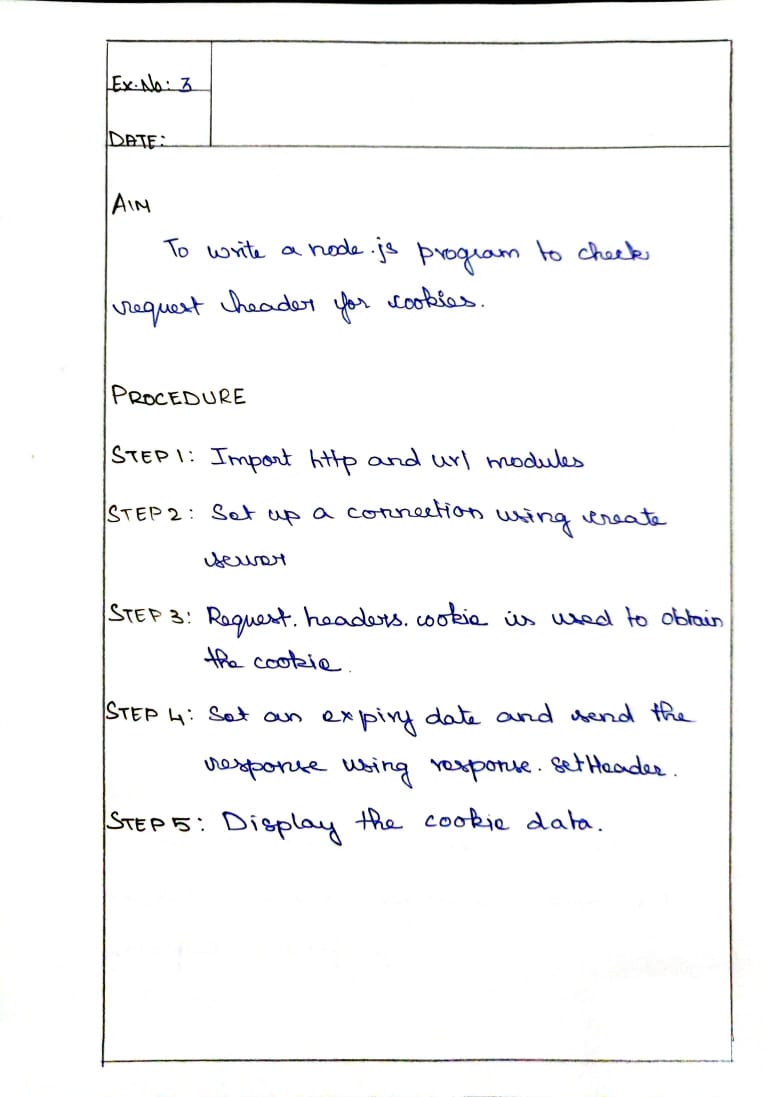 Ex.No: 3
DATE:
AIM
To write a node.js program to check
request header for cookies.
PROCEDURE
STEP 1: Import http and url modules
STEP 2: Set up a connection using create
server
STEP 3: Request.headers.cookie is used to obtain
the cookie.
STEP 4: Set an expiry date and send the
response using response.setHeader.
STEP 5: Display the cookie data.